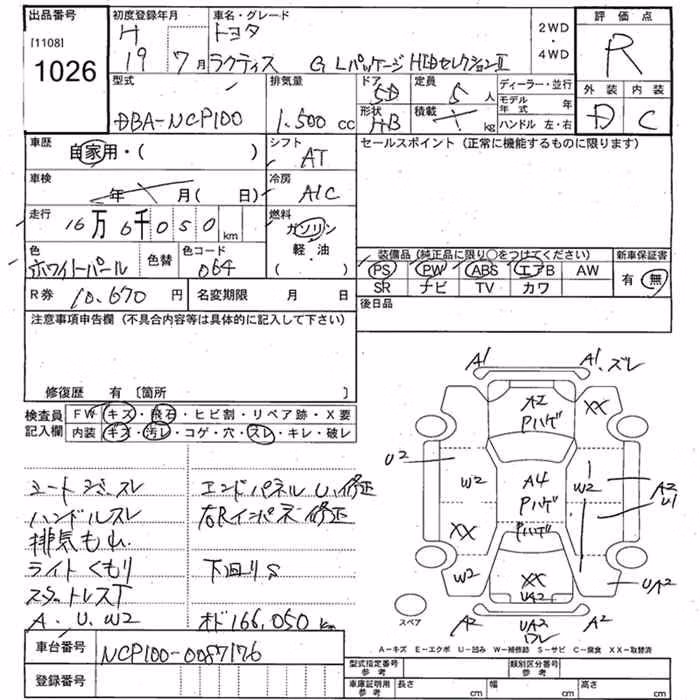 出品番号 初度登録年月 車名・グレード 2WD・4WD 評価点
[1108] H トヨタ R
1026 19 7月 ラクティス G Lパッケージ HIDセレクションII
型式 排気量 ドア 5D 定員 5人 ディーラー・並行 外装 内装
DBA-NCP100 1.500cc 形状 HB 積載 kg モデル年式 年 D C
ハンドル 左・右
車歴 自家用・( ) シフト AT セールスポイント (正常に機能するものに限ります)
車検 年 月( 日) 冷房 A/C
走行 16万6千050km 燃料 ガソリン
軽・油
( )
色 色替 色コード 装備品 (純正品に限り○をつけてください) 新車保証書
ホワイトパール 064 PS PW ABS エアB AW 有・無
SR ナビ TV カワ
R券 10,670円 名変期限 月 日 後日品
注意事項申告欄 (不具合内容等は具体的に記入して下さい)
修復歴 有 〔箇所 〕
検査員記入欄 FW キズ・飛石・ヒビ割・リペア跡・X要
内装 キズ・汚レ・コゲ・穴・スレ・キレ・破レ
A1 A1.ズレ
A2 Pハゲ XX
U2 W2 A4 Pハゲ W2 A2 U1
XX Pハゲ
W2 XX UA2 UA2
A2 UA2 ワレ A2
シートシミ.スレ エンドパネルU.修正
ハンドルスレ 右Rインパネ修正
排気もれ
ライトくもり 下回りS
スタットレスT
A.U.W2 オド166,050km
スペア
A－キズ E－エクボ U－凹み W－補修跡 S－サビ C－腐食 XX－取替済
車台番号 NCP100-0087126
登録番号
型式指定番号 参考 類別区分番号 参考
車庫証明用 参考 長さ cm 幅 cm 高さ cm